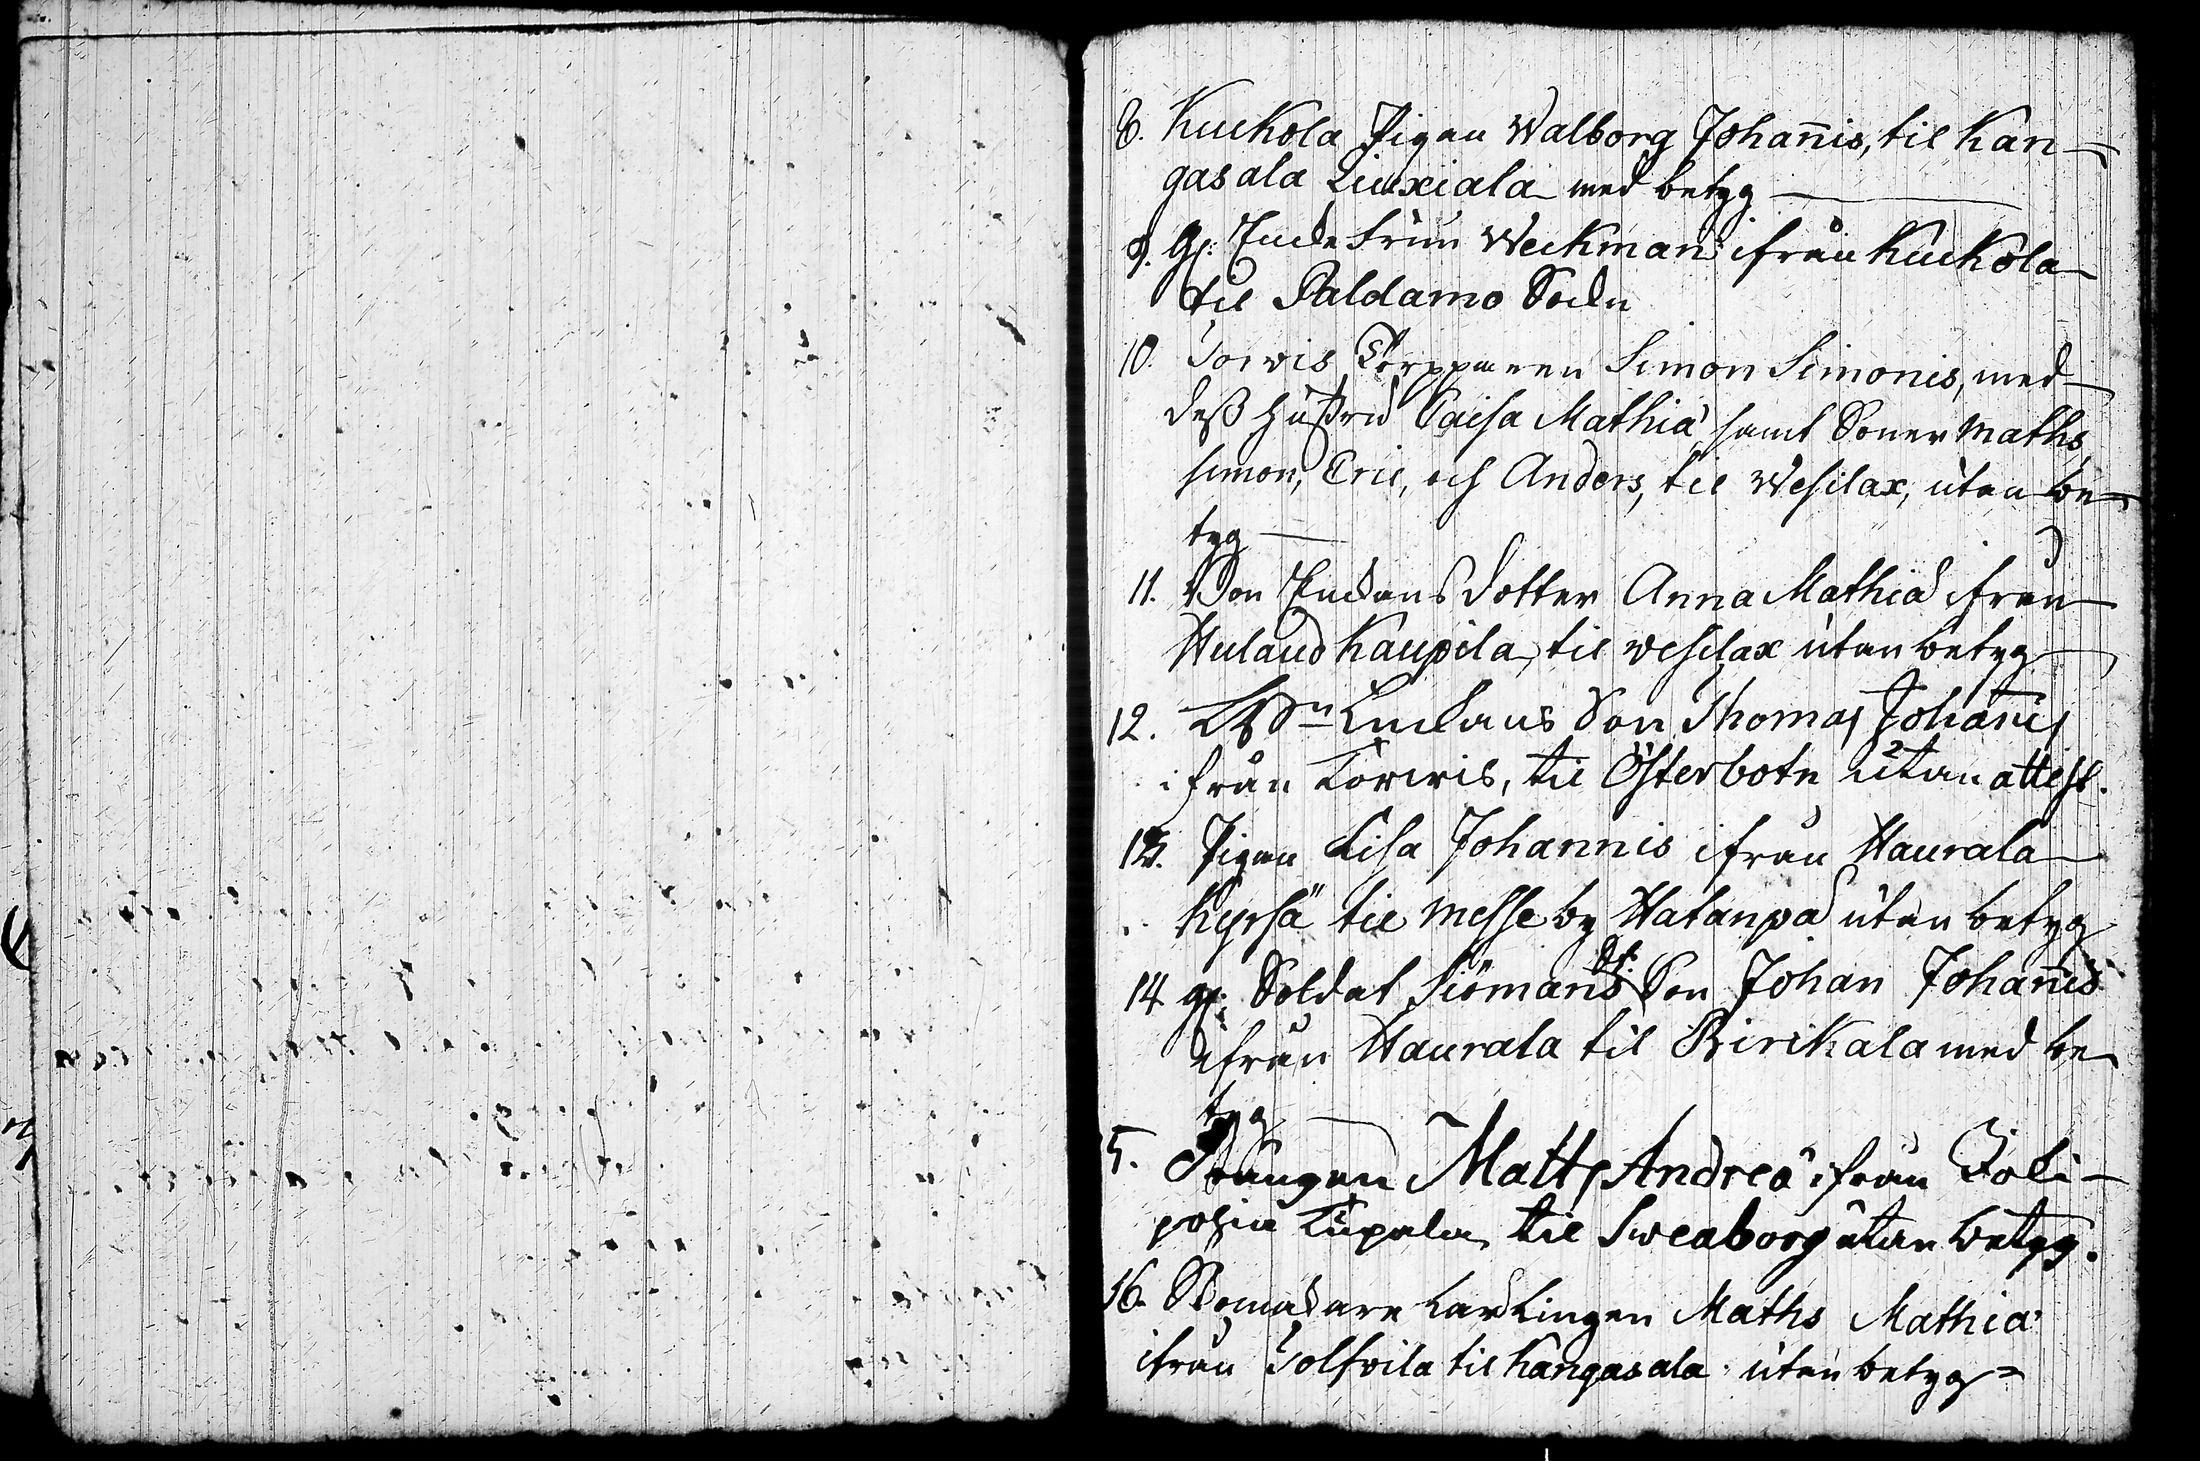 8. Kuckola Pigan Walborg Johan̄is, til Kan-
gasala Liuxiala med betyg
9. gl: Encke frun Weckman ifrån Kuckola
til Paldamo Sockn
10. Torpparen Simon Simonis, med
deß hustru Caisa Mathiæ samt Söner Maths,
Simon, Eric, och Anders, til Wesilax, utan be-
tyg
11. dotter Anna Mathiæ ifrån
Kaupila, til Wesilax utan betyg
12. Enckans Son Thomas Johan̄is
ifrån til Österbotn utan attest.
13. Pigan Lisa Johannis ifrån Haurala
Kyrsä til Messeby Hatanpä utan betyg
14 gl: Soldat Siömans Son Johan Johan̄is
ifrån Haurala til Birikala med be
tyg
15. Drängen Matts Andreæ ifrån Toli-
til Sweaborg utan betyg.
16. Skomakare Lärlingen Maths Mathiæ
ifrån Tolfvila til Kangasala utan betyg